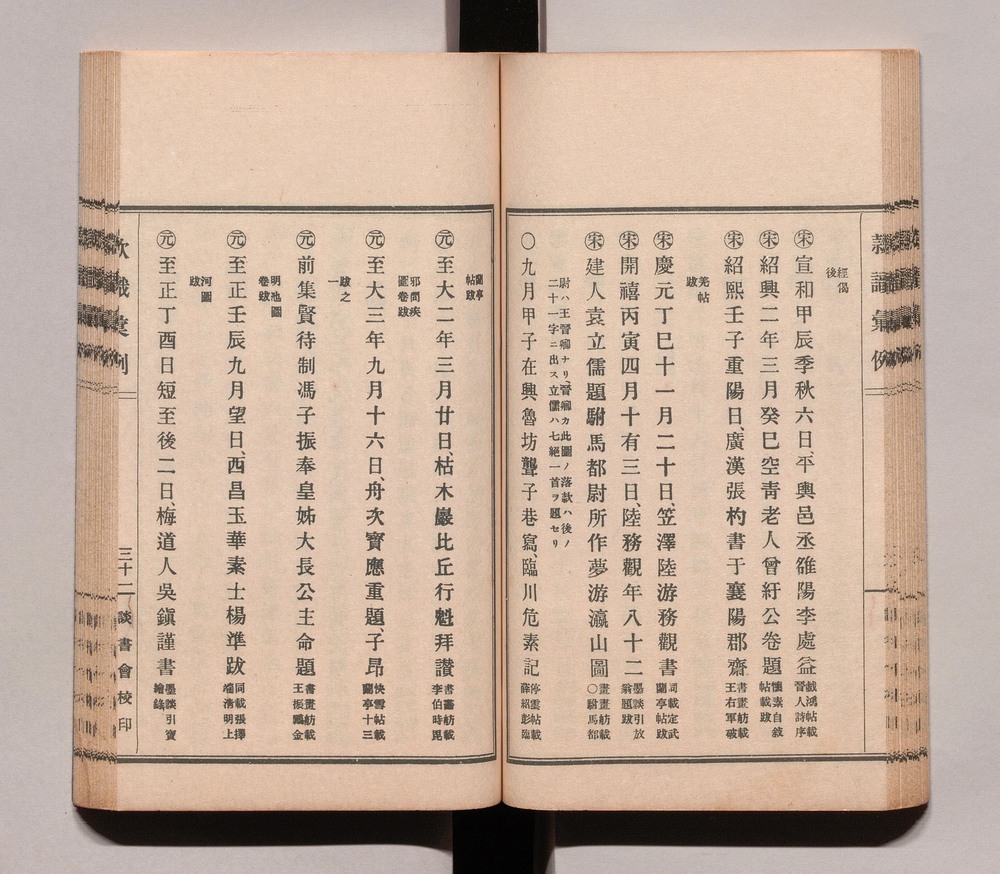 經偈
後
㊪宣和甲辰季秋六日、平輿邑丞雒陽李處益
戲鴻帖載
晉人詩序
㊪紹興二年三月癸巳空靑老人曾紆公卷題
懷素自敘
帖載跋
㊪紹熙壬子重陽日、廣漢張杓書于襄陽郡齋
書畫舫載
王右軍破
羌帖
跋
㊪慶元丁巳十一月二十日、笠澤陸游務觀書
同載定武
蘭亭帖跋
㊪開禧丙寅四月十有三日、陸務觀年八十二
墨談引放
翁題跋
㊪建人袁立儒題駙馬都尉所作夢游瀛山圖
書畫舫載
〇駙馬都
尉ハ王晉卿ナリ、晉卿カ此圖ノ落款ハ後ノ
二十一字ニ出ス立儒ハ七絕一首ヲ題セリ
〇九月甲子在興魯坊聾子巷寫、臨川危素記
停雲帖載
薛紹彭臨
蘭亭
帖跋
㊒至大二年三月廿日、枯木巖比丘行魁拜讚
書畫舫載
李伯時毘
邪問疾
圖卷跋
㊒至大三年九月十六日、舟次寶應重題、子昂
快雪帖載
蘭亭十三
跋之
一
㊒前集賢待制馮子振奉皇姊大長公主命題
書畫舫載
王振鵬金
明池圖
卷跋
㊒至正壬辰九月望日、西昌玉華素士楊準跋
同載張擇
端淸明上
河圖
跋
㊒至正丁酉日短至後二日、梅道人吳鎭謹書
墨談引寶
繪錄
三十二
談書會校印